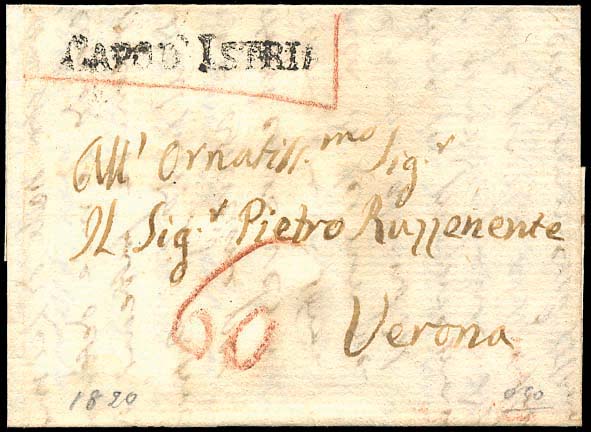 CAPOD' ISTRIA
All' Ornatiss.mo Sig.r
Il Sig.r Pietro Ruzzenente
60
Verona
1820